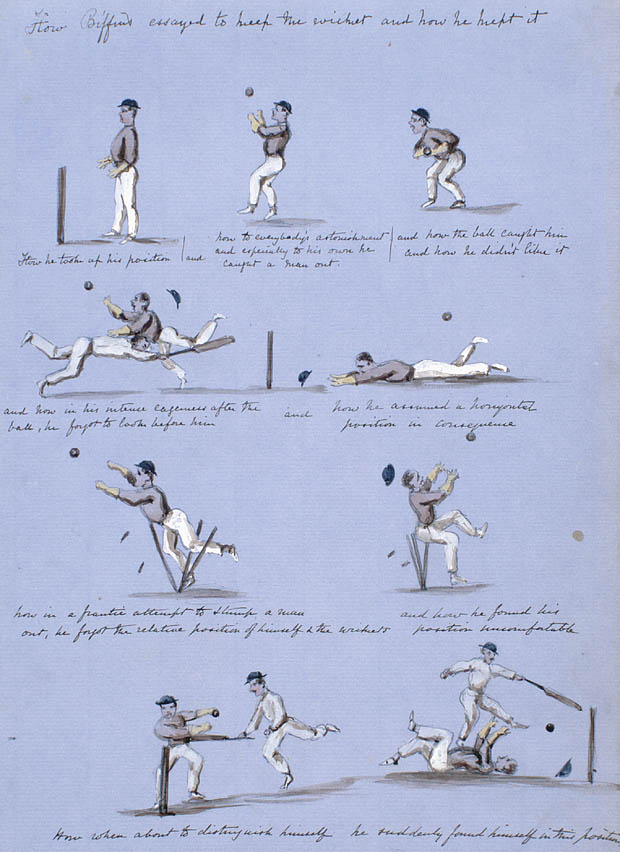 How Biffins essayed to keep the wicket and how he kept it
How he took up his position | and
how to everybody's astonishment
and especially to his own he
caught a man out.
and how the ball caught him
and how he didn't like it
and how in his intense eagerness after the
ball, he forgot to look before him
and
how he assumed a horizontal
position in consequence
how in a frantic attempt to stump a man
out, he forgot the relative position of himself & the wickets
and how he found his
position uncomfortable
How when about to distinguish himself he suddenly found himself in this position